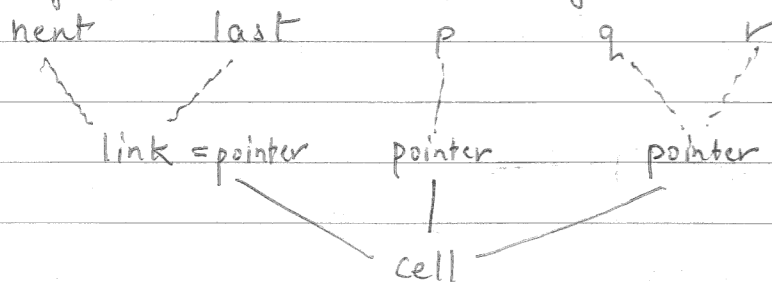 next last p q r
link = pointer pointer pointer
cell